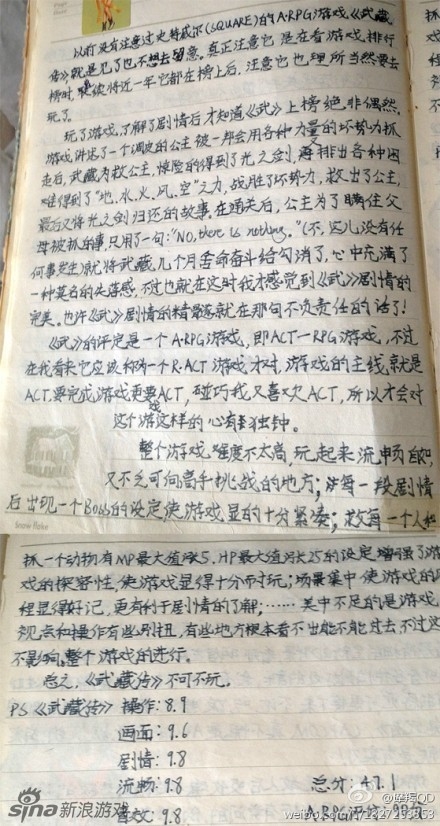 以前没有注意过史特威尔(SQUARE)的A·RPG游戏《武藏
传》就是见了也不想去留意。真正注意它是在看游戏排行
榜时,连续将近一年它都在榜上后,注意它也理所当然要去
玩了。
玩了游戏,了解了剧情后才知道《武》上榜绝非偶然。
游戏讲述了一个调皮的公主被一邦会用各种力量的坏势力抓
走后,武藏为救公主,惊险的得到了光之剑,又排出各种困
难得到了“地、水、火、风、空”之力,战胜了坏势力,救出了公主,
最后又将光之剑归还的故事,在通关后,公主为了瞒住父
母被抓的事,只用了一句:“NO,there is nothing.”(不,这儿没有任
何事发生)就将武藏几个月舍命奋斗给勾消了,心中充满了
一种莫名的失落感,不过也就在这时我才感觉到《武》剧情的
完美。也许《武》剧情的精髓就在那句不负责任的话了!
《武》的评定是一个A·RPG游戏,即ACT—RPG游戏,不过
在我看来它应该称为一个R·ACT游戏才对,游戏的主线就是
ACT,要完成游戏更要ACT,碰巧我又喜欢ACT,所以才会对
这个游戏这样的心有独钟。
整个游戏难度不太高,玩起来流畅自如,
又不乏可向高手挑战的地方;每一段剧情
后出现一个Boss的设定使游戏显的十分紧凑;救每一个人和
Snow flake
抓一个动物有MP最大值涨5、HP最大值涨25的设定增强了游
戏的探密性,使游戏显得十分耐玩;场景集中使游戏的
程显得好记,更有利于剧情的了解;……美中不足的是游戏
视点和操作有些别扭,有些地方根本看不出能不能过去,不过这
不影响整个游戏的进行。
总之,《武藏传》不可不玩。
PS《武藏传》操作:8.9
画面:9.6
剧情:9.8
流畅:9.8 总分:47.1
音效:9.8
sina新浪游戏